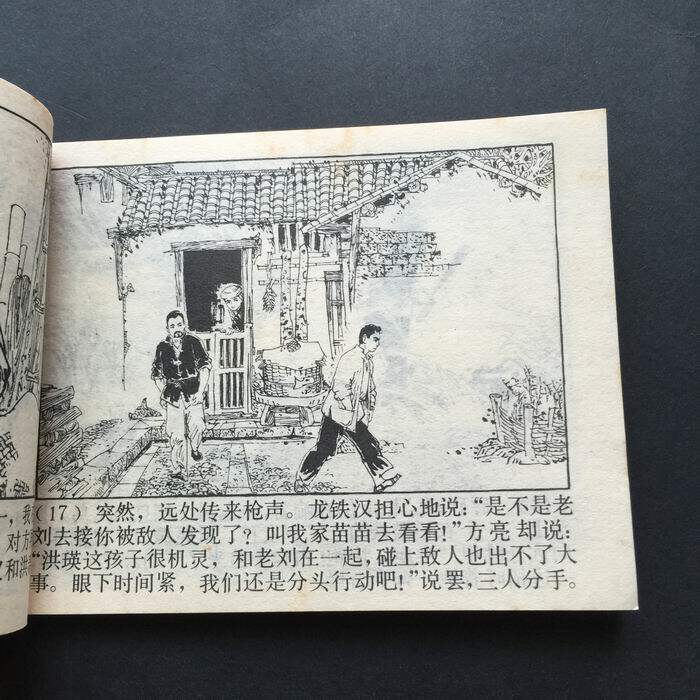 一，我
对方
和洪
(17) 突然，远处传来枪声。龙铁汉担心地说：“是不是老
刘去接你被敌人发现了？叫我家苗苗去看看！”方亮却说：
“洪瑛这孩子很机灵，和老刘在一起，碰上敌人也出不了大
事。眼下时间紧，我们还是分头行动吧！”说罢，三人分手。